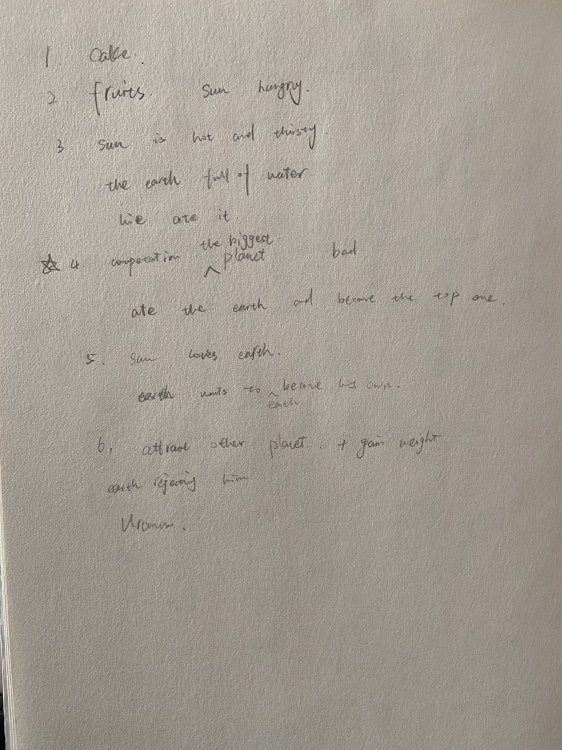 1. Cake.
2 fruits. Sun hungry.
3. Sun is hot and thirsty.
the earth full of water
he ate it
☆ 4. the biggest planet bad
ate the earth and become the top one.
5. Sun loves earth.
earth wants to become his own.
earth
6. attract other planet. + gain weight
earth rejecting him
Uranus.